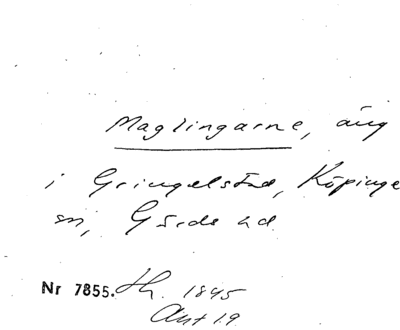 Maglingarne, äng
i Gringelstad, Köpinge
sn, Gärds hd
Nr 7855. Lh. 1845
Akt 19